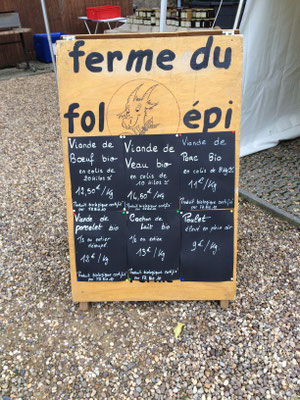 ferme du
fol épi
Viande de
Bœuf bio
en colis de
20 kilos
12,50€/kg
Produit biologique certifié
Viande de
Veau bio
en colis de
10 kilos
14,50€/kg
Produit biologique certifié
Viande de
Porc Bio
en colis de 8 kg
11€/kg
Produit biologique certifié
Viande de
porcelet bio
1/2 ou entier
découpé
12€/kg
Produit biologique certifié
Cochon de
lait bio
1/2 ou entier
13€/kg
Produit biologique certifié
Poulet
élevé en plein air
9€/kg